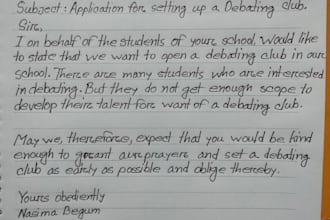 Subject: Application for setting up a Debating club.
Sir,
I on behalf of the students of your school, would like
to state that we want to open a debating club in our
school. There are many students who are interested
in debating. But they do not get enough scope to
develop their talent for want of a debating club.
May we, therefore, expect that you would be kind
enough to grant our prayer and set a debating
club as early as possible and oblige thereby.
Yours obediently
Nasima Begum